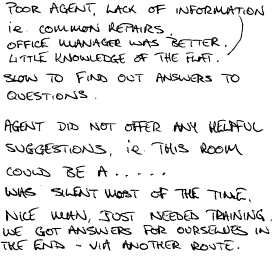 POOR AGENT, LACK OF INFORMATION
ie. COMMON REPAIRS.
OFFICE MANAGER WAS BETTER.
LITTLE KNOWLEDGE OF THE FLAT.
SLOW TO FIND OUT ANSWERS TO
QUESTIONS.
AGENT DID NOT OFFER ANY HELPFUL
SUGGESTIONS, ie. THIS ROOM
COULD BE A .....
WAS SILENT MOST OF THE TIME.
NICE MAN, JUST NEEDED TRAINING.
WE GOT ANSWERS FOR OURSELVES IN
THE END - VIA ANOTHER ROUTE.